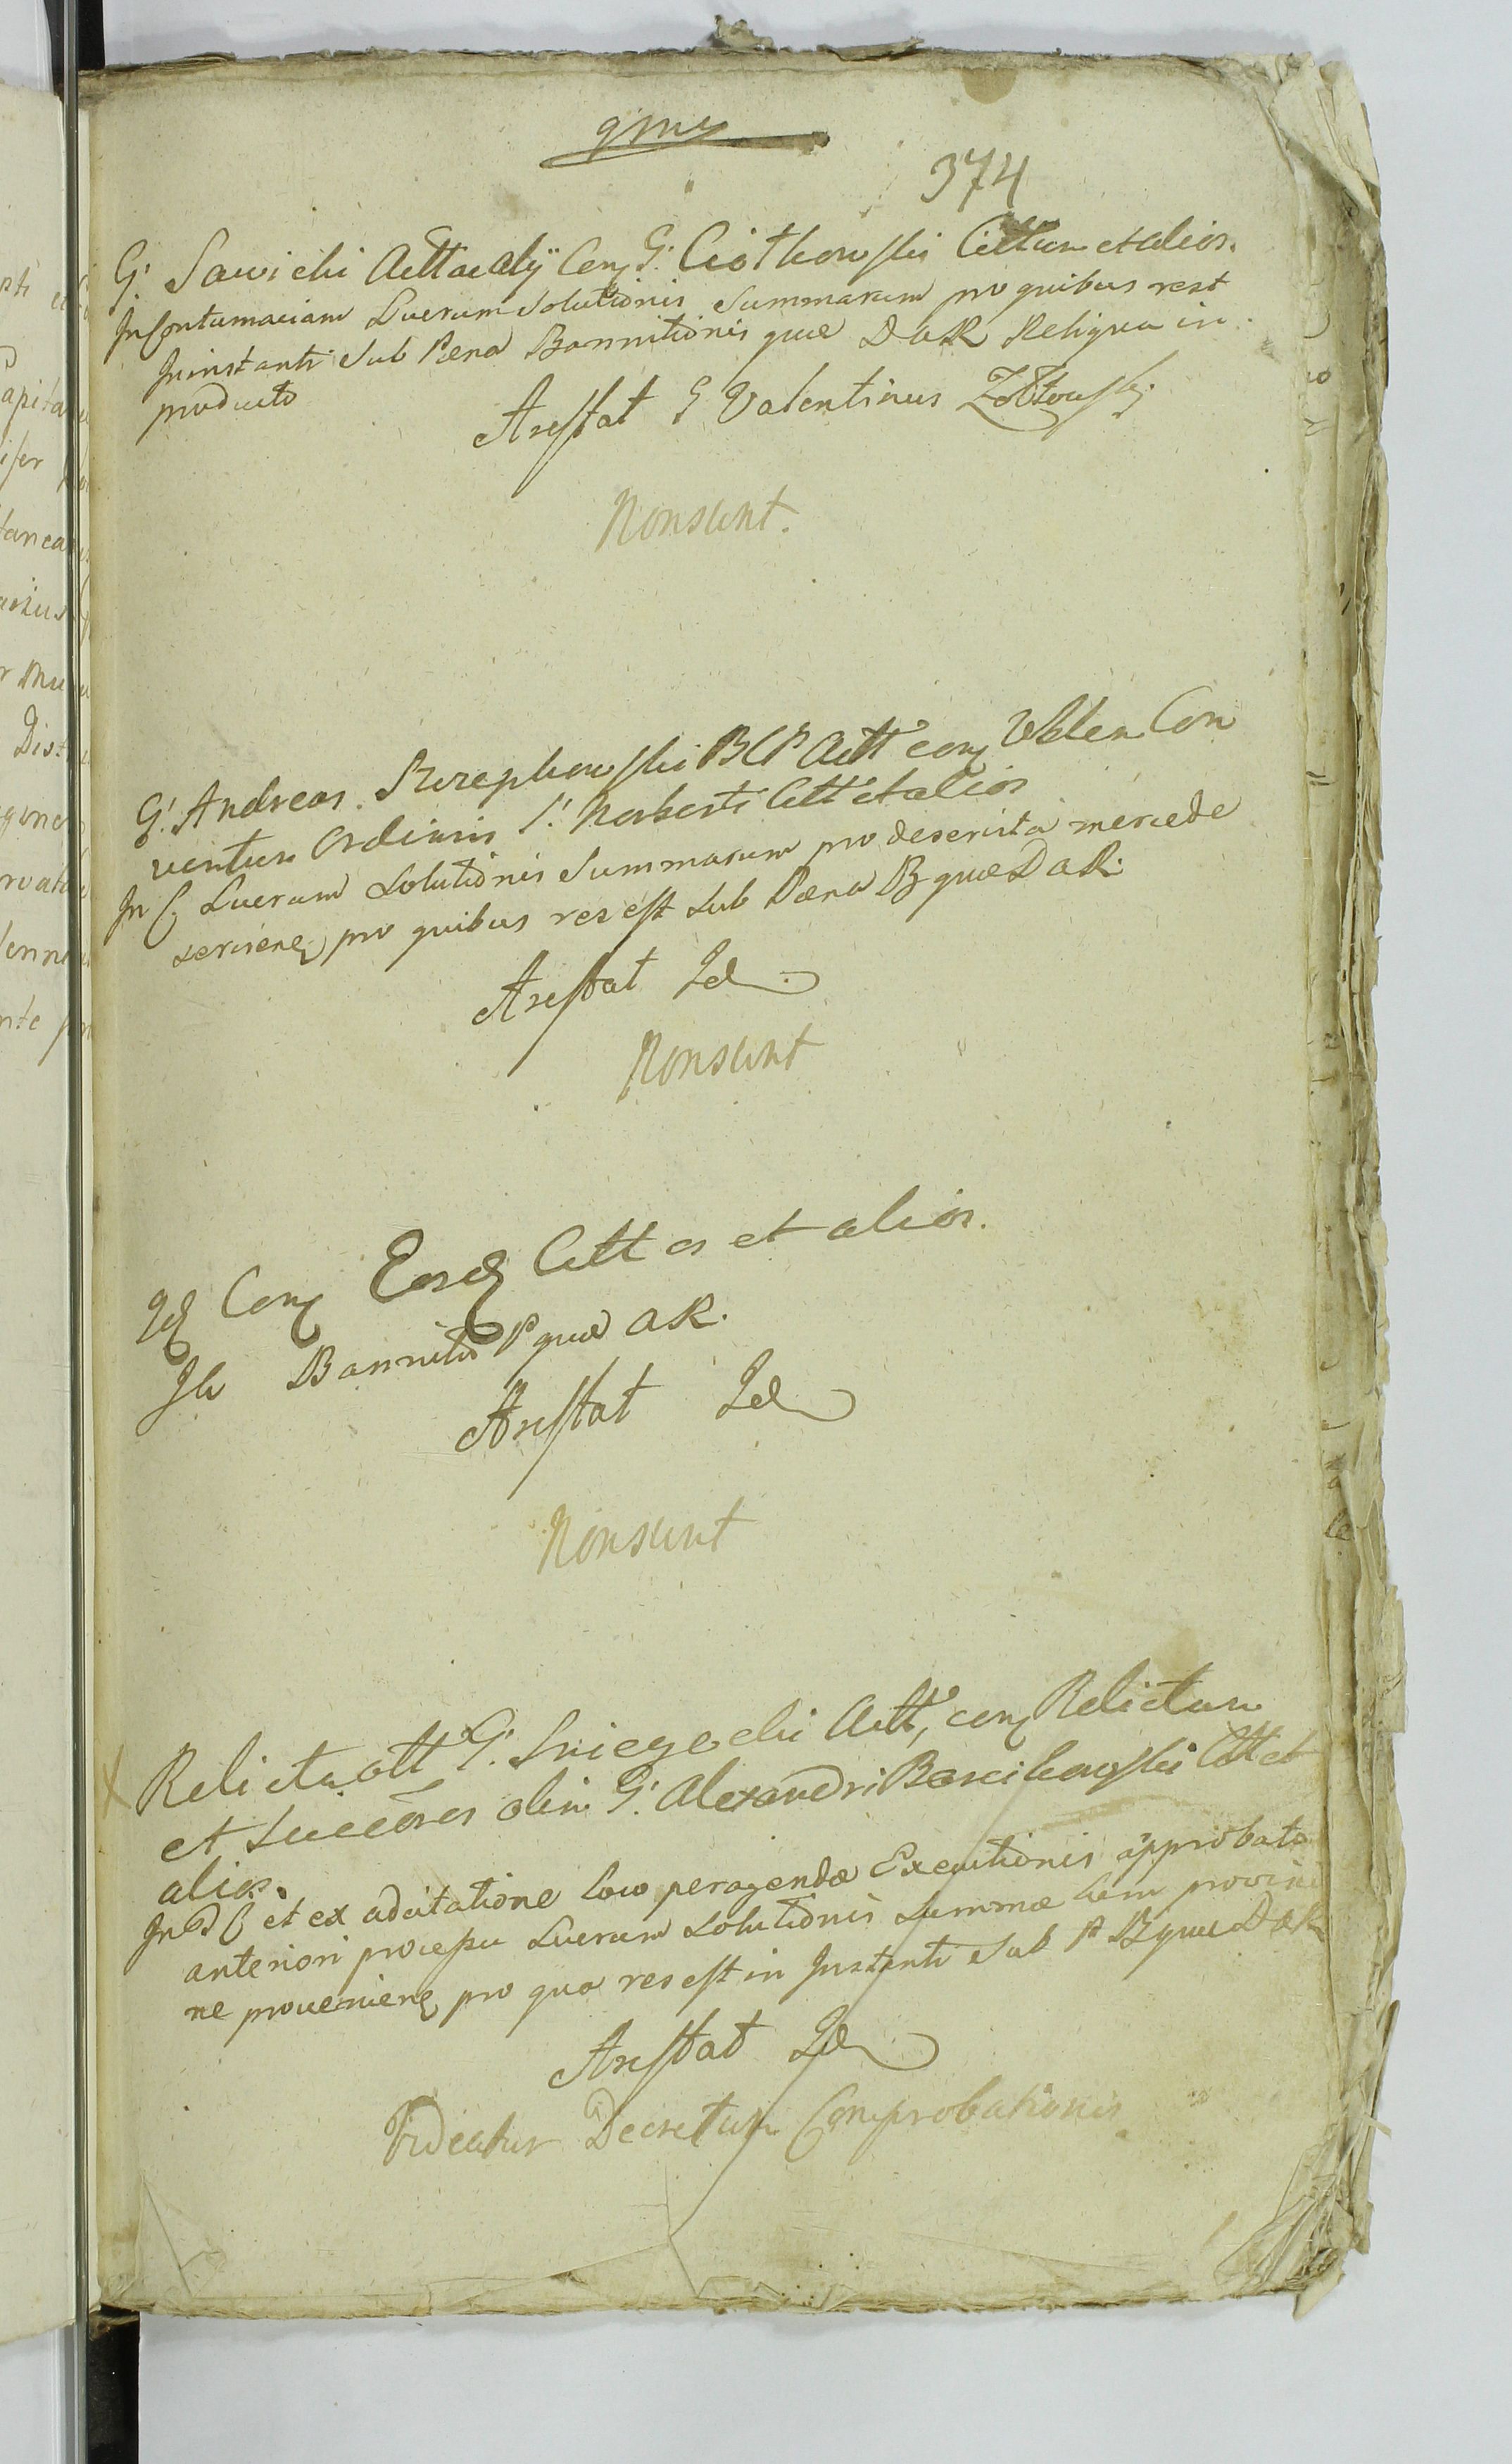 374
G. Sawicki Actt ac alÿ Con G. Ciotkowski Cittum et alios.
In Contumaciam Luerum Solutionis Summarum pro quibus rest
Ininstanti Sub Pœna Bannitionis quæ DaR Reliqua in
producto
Arestat G Valentinus Zołtowski
Nonsunt.
G. Andreas BCP Actt con Vblem Con
ventum Ordinis S. Norberti Citt et alios
In C. Luerum Solutionis Summarum pro deservita mercede
pro quibus res est sub Pœna B quæ DaR.
Arestat Id
Nonsunt
Id Con Eosd Citt os et alios.
In Bannitio P quæ aR.
Arestat Id
Nonsunt
Relicta olt G. Sniegocki Actt, con Relictam
et Succores olim G. Alexandri Citt et
alios.
In C et ex adcitatione loco peragendæ Executionis approbato
anteriori processu Luerum Solutionis Summæ
ne pro qua res est in Instanti Sub P B quæ DaR
Arestat Id
Videatur Decretum Comprobationis